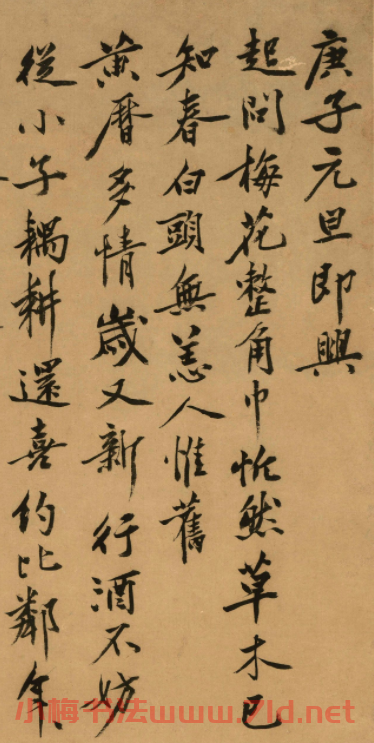 庚子元旦即興
起問梅花整角巾恍然草木已
知春白頭無恙人惟舊
黄曆多情歲又新行酒不妨
從小子耦耕還喜約比鄰年、
小梅书法www.7ld.net